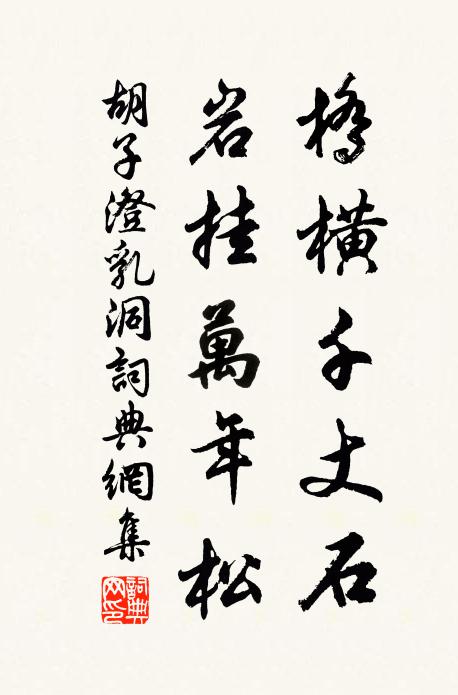 橋橫千丈石
岩挂萬年松
胡子澄乳洞詞典網集
詞典网印